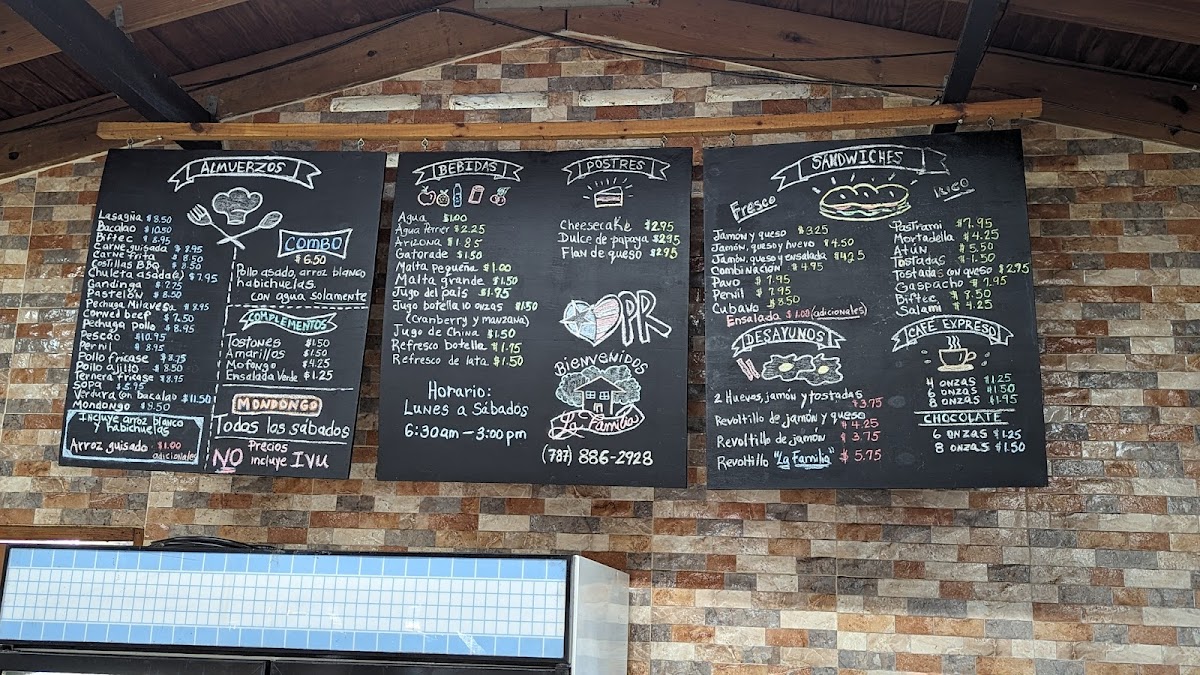 ALMUERZOS
Lasagña $8.50
Bacalao $10.50
Biftec $8.95
Carne guisada $8.95
Carne frita $8.50
Costillas BBQ $8.50
Chuleta asada(a) $7.95
Gandinga $7.75
Pastelón $8.50
Pechuga Milanesa $8.95
Corned beef $7.50
Pechuga Pollo $8.95
Pescao $10.95
Pernil $8.95
Pollo fricase $8.75
Pollo ajillo $8.50
Ternera fricase $8.95
Sopa $5.95
Verdura con bacalao $11.50
Mondongo $9.50
Incluye arroz blanco
y habichuelas
Arroz guisado $1.00
adicionales
COMBO
$6.50
Pollo asado, arroz blanco
habichuelas.
con agua solamente
COMPLEMENTOS
Tostones $1.50
Amarillos $1.50
Mofongo $4.25
Ensalada Verde $1.25
MONDONGO
Todos los sábados
Precios
NO incluye IVU
BEBIDAS
Agua $1.00
Agua Perrer $2.25
Arizona $1.85
Gatorade $1.50
Malta pequeña $1.00
Malta grande $1.50
Jugo del país $1.75
Jugo botella 10 onzas $1.50
(Cranberry y manzana)
Jugo de China $1.50
Refresco botella $1.75
Refresco de lata $1.50
Horario:
Lunes a Sábados
6:30am - 3:00pm
POSTRES
Cheesecake $2.95
Dulce de papaya $2.95
Flan de queso $2.95
PR
BIENVENIDOS
La Familia
(787) 886-2928
SANDWICHES
Fresco
Rico
Jamón y queso $3.25
Jamón, queso y huevo $4.50
Jamón, queso y ensalada $4.25
Combinación $4.95
Pavo $7.95
Pernil $7.95
Cubano $8.50
Ensalada $1.00 (adicionales)
Pastrami $7.95
Mortadella $4.25
Atún $5.50
Tostadas $1.50
Tostadas con queso $2.75
Gaspacho $7.95
Biftec $8.50
Salami $4.25
DESAYUNOS
2 Huevos, jamón y tostadas
$3.75
Revoltillo de jamón y queso
$4.25
Revoltillo de jamón $3.75
Revoltillo "La Familia" $5.75
CAFÉ EXPRESO
4 onzas $1.25
6 onzas $1.50
8 onzas $1.95
CHOCOLATE
6 onzas $1.25
8 onzas $1.50